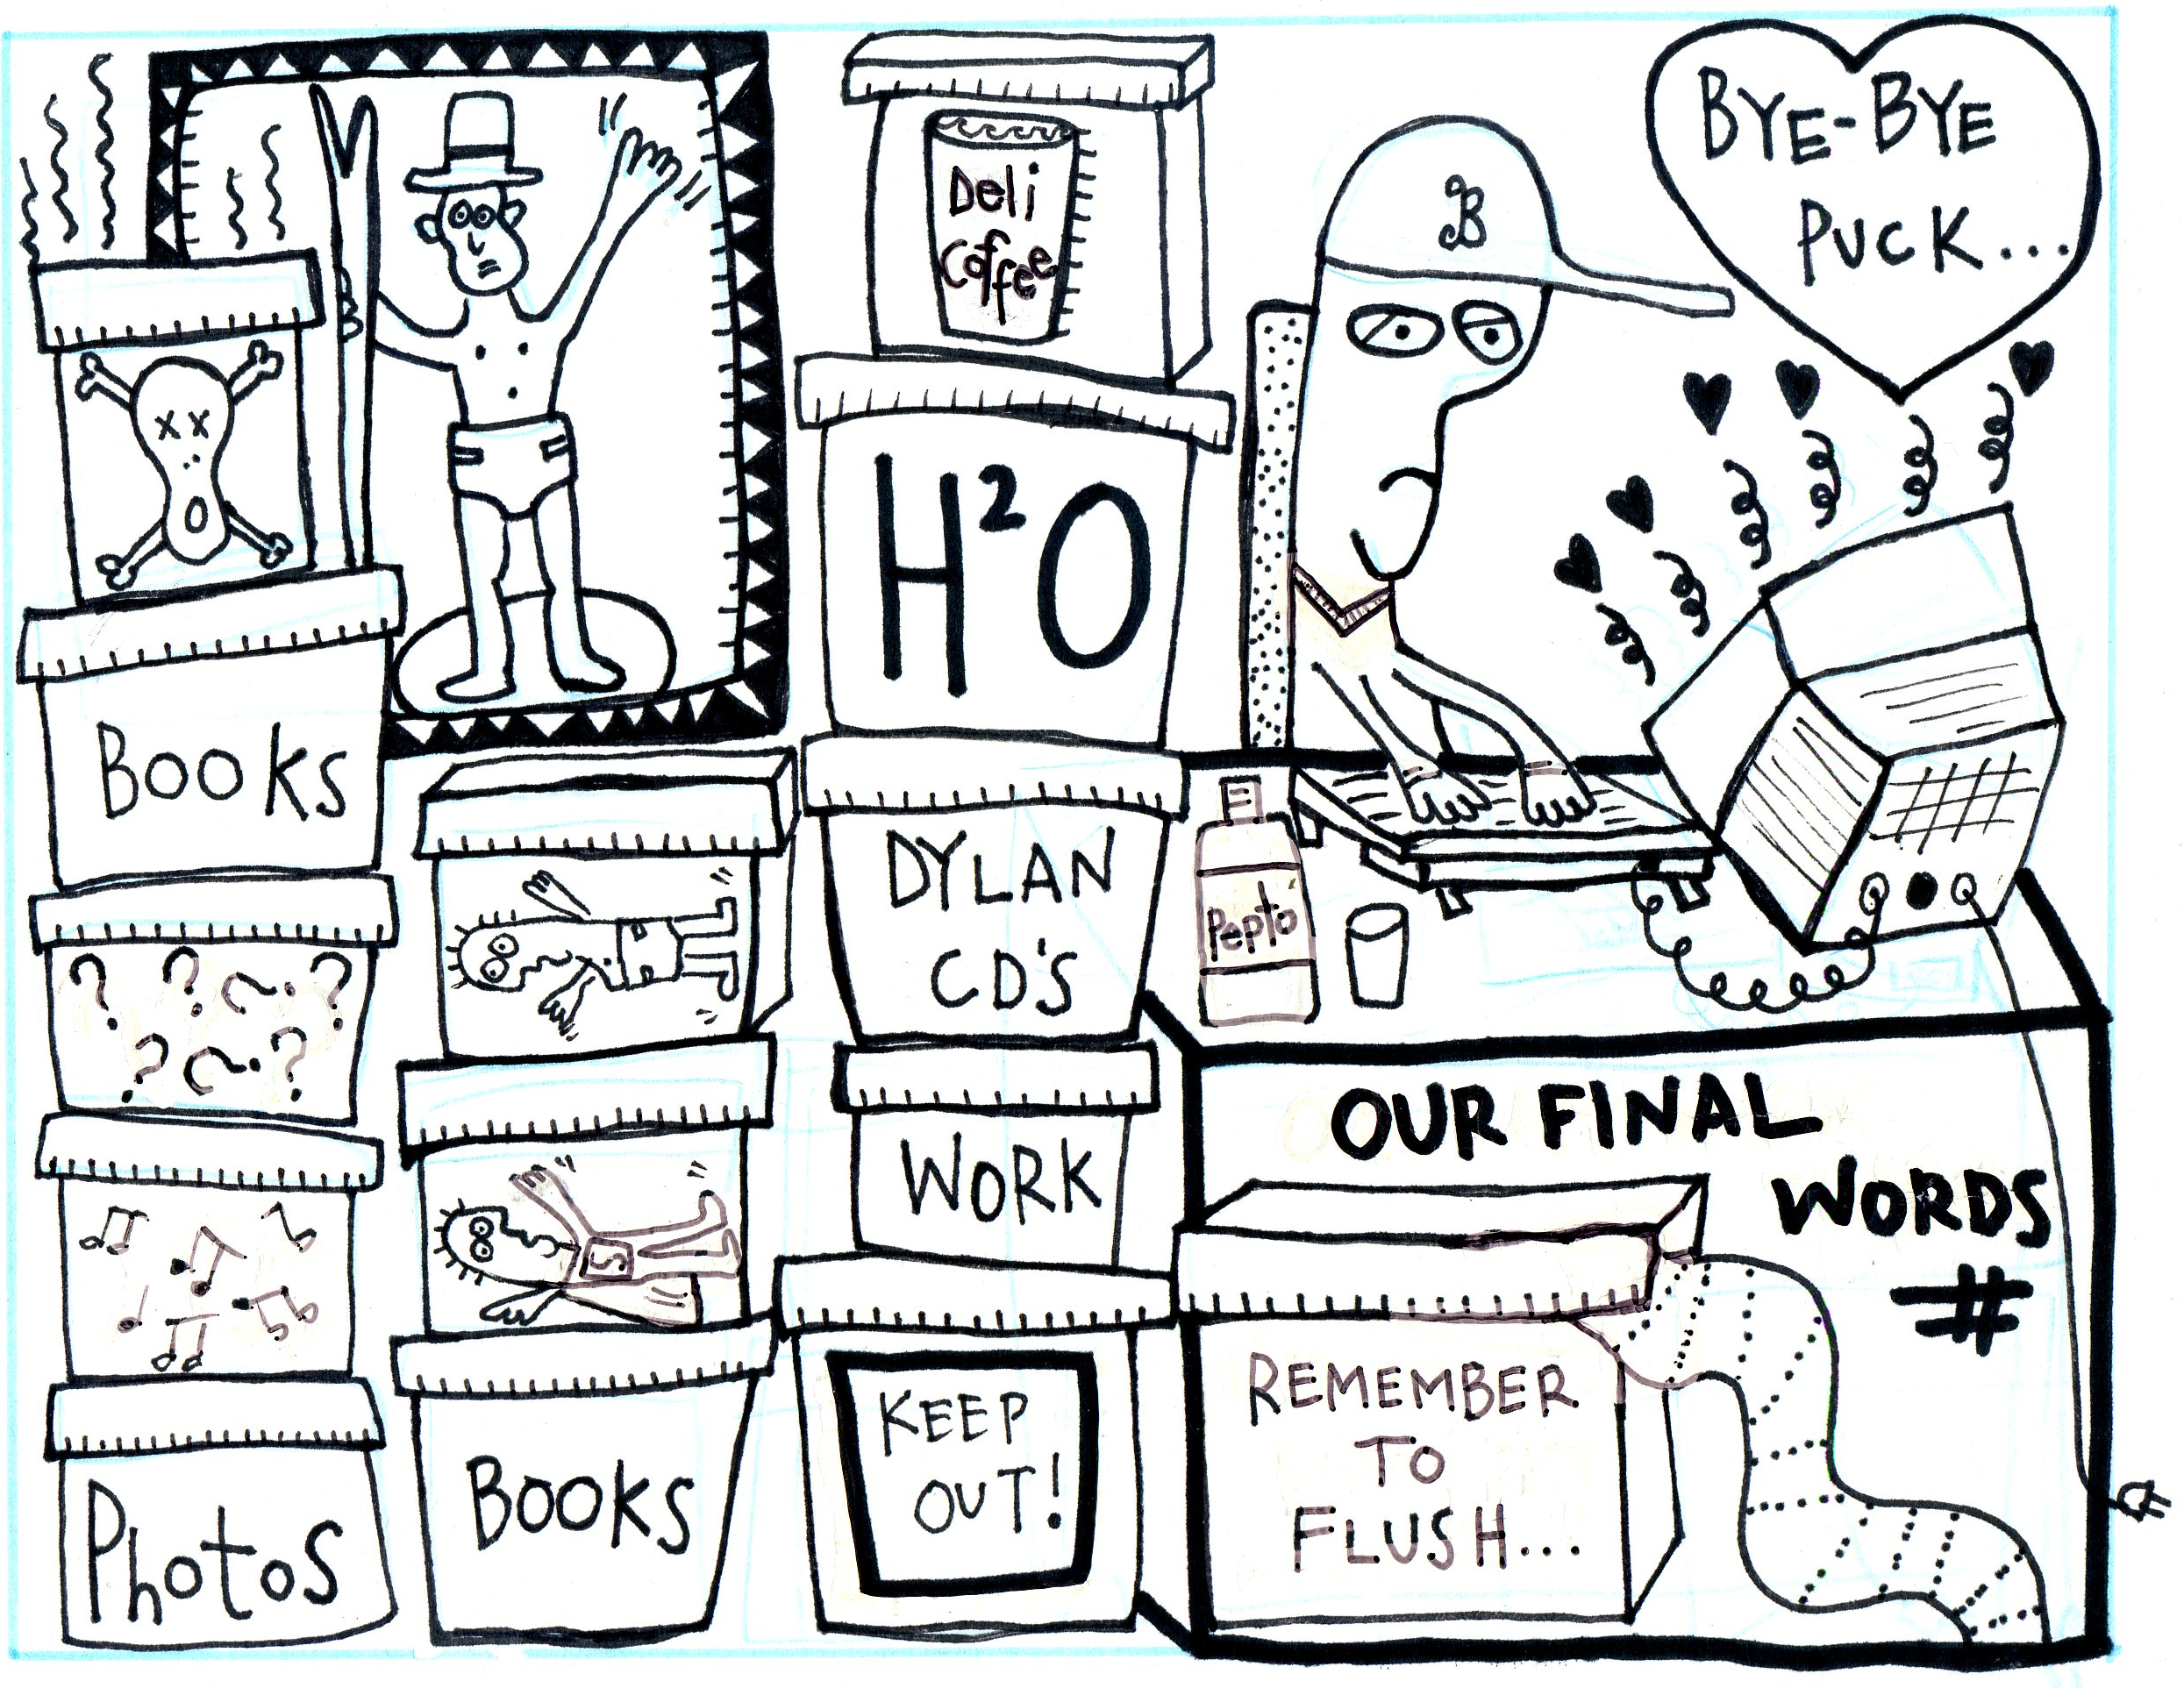 Deli
Coffee
B
BYE-BYE
PUCK...
H²O
BOOKS
xx
DYLAN
CD'S
Pepto
? ? ? ?
? ? ?
WORK
OUR FINAL
WORDS
#
S
Photos
BOOKS
KEEP
OUT!
REMEMBER
TO
FLUSH...